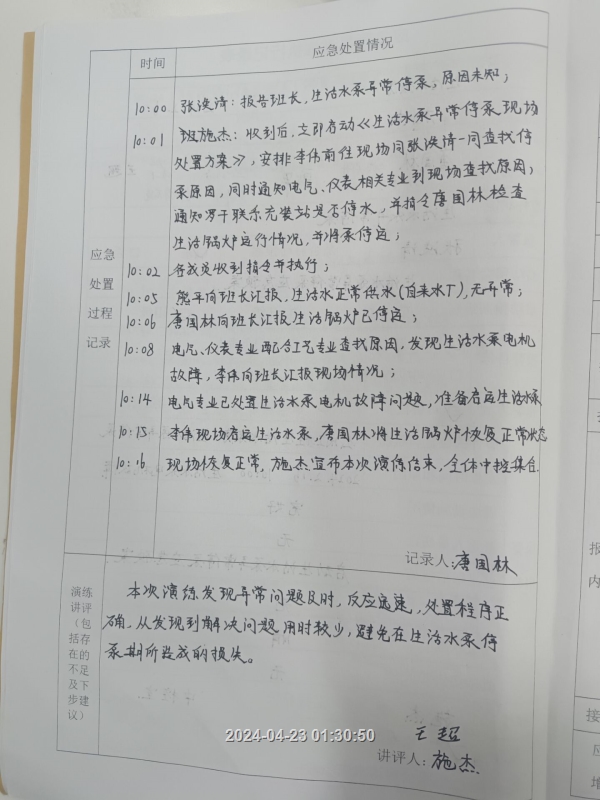 时间 应急处置情况
10:00 张洪清：报告班长，生活水泵异常停泵，原因未知；
10:01 班施杰：收到后，立即启动《生活水泵异常停泵现场
处置方案》，安排李伟前往现场同张洪清一同查找停
泵原因，同时通知电气、仪表相关专业到现场查找原因，
通知 联系充装站是否停水，并指令唐国林检查
生活锅炉运行情况，并将泵停运；
10:02 各成员收到指令并执行；
10:05 熊平向班长汇报，生活水正常供水（自来水厂），无异常；
10:06 唐国林向班长汇报生活锅炉已停运；
10:08 电气、仪表专业配合工艺专业查找原因，发现生活水泵电机
故障，李伟向班长汇报现场情况；
10:14 电气专业已处置生活水泵电机故障问题，准备启运生活水泵
10:15 李伟现场启运生活水泵，唐国林将生活锅炉恢复正常状态
10:16 现场恢复正常，施杰宣布本次演练结束，全体中控集合
应急
处置
过程
记录
记录人：唐国林
演练
讲评
（包
括存
在的
不足
及下
步建
议）
本次演练发现异常问题及时，反应迅速，处置程序正
确，从发现到解决问题用时较少，避免在生活水泵停
泵期所造成的损失。
王超
讲评人：施杰
2024-04-23 01:30:50
报
内
接
应
增